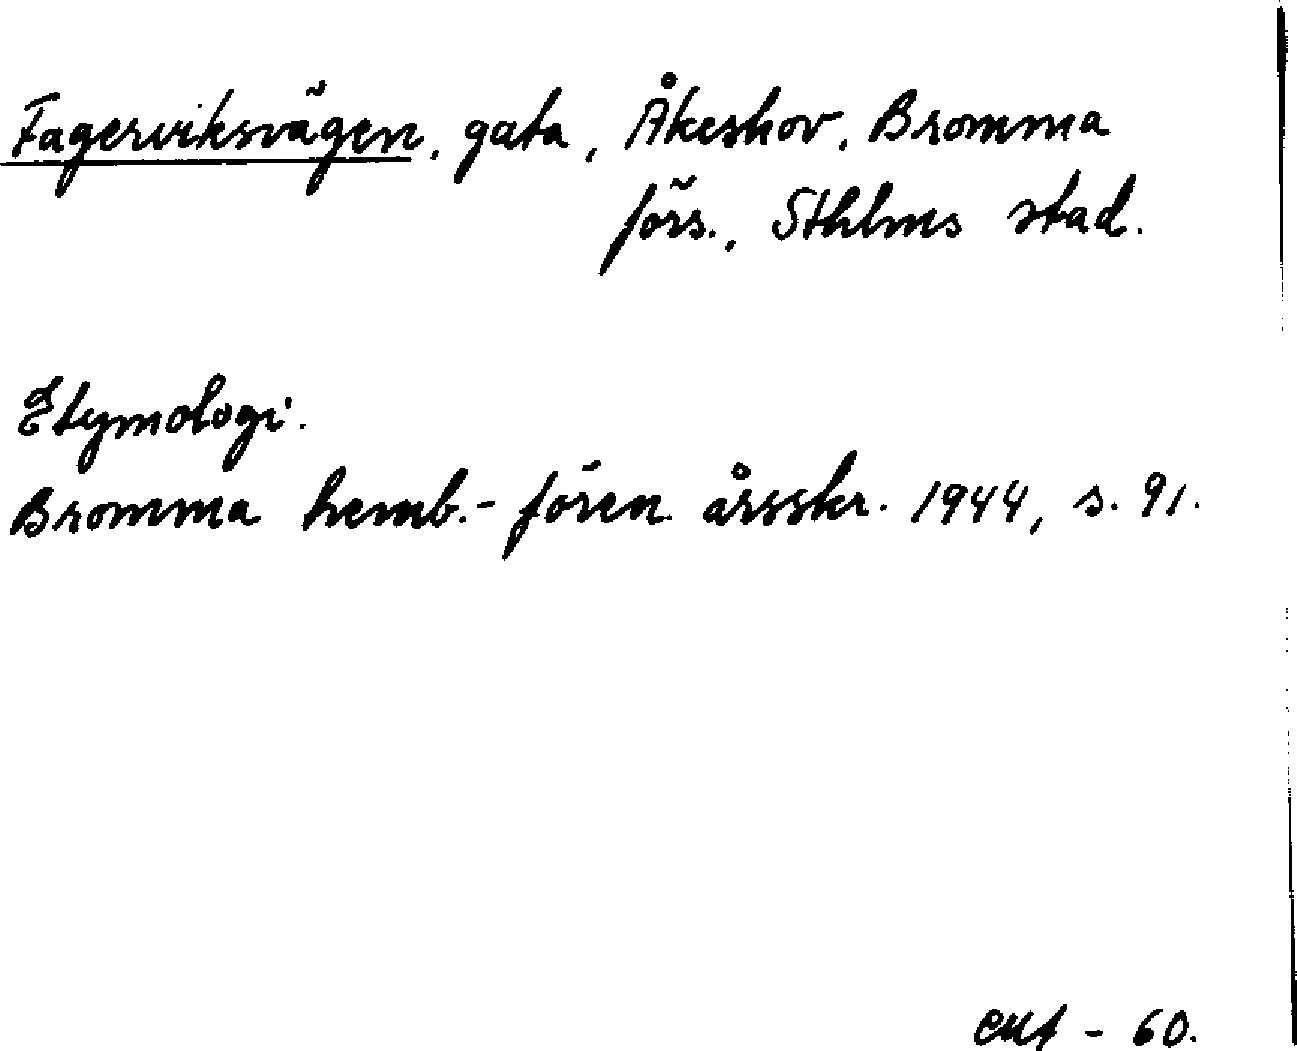 Fagerviksvägen, gata, Åkeshov, Bromma
förs., Sthlms stad.
Etymologi.
Bromma hemb.-fören. årsskr. 1944, s. 91.
- 60.